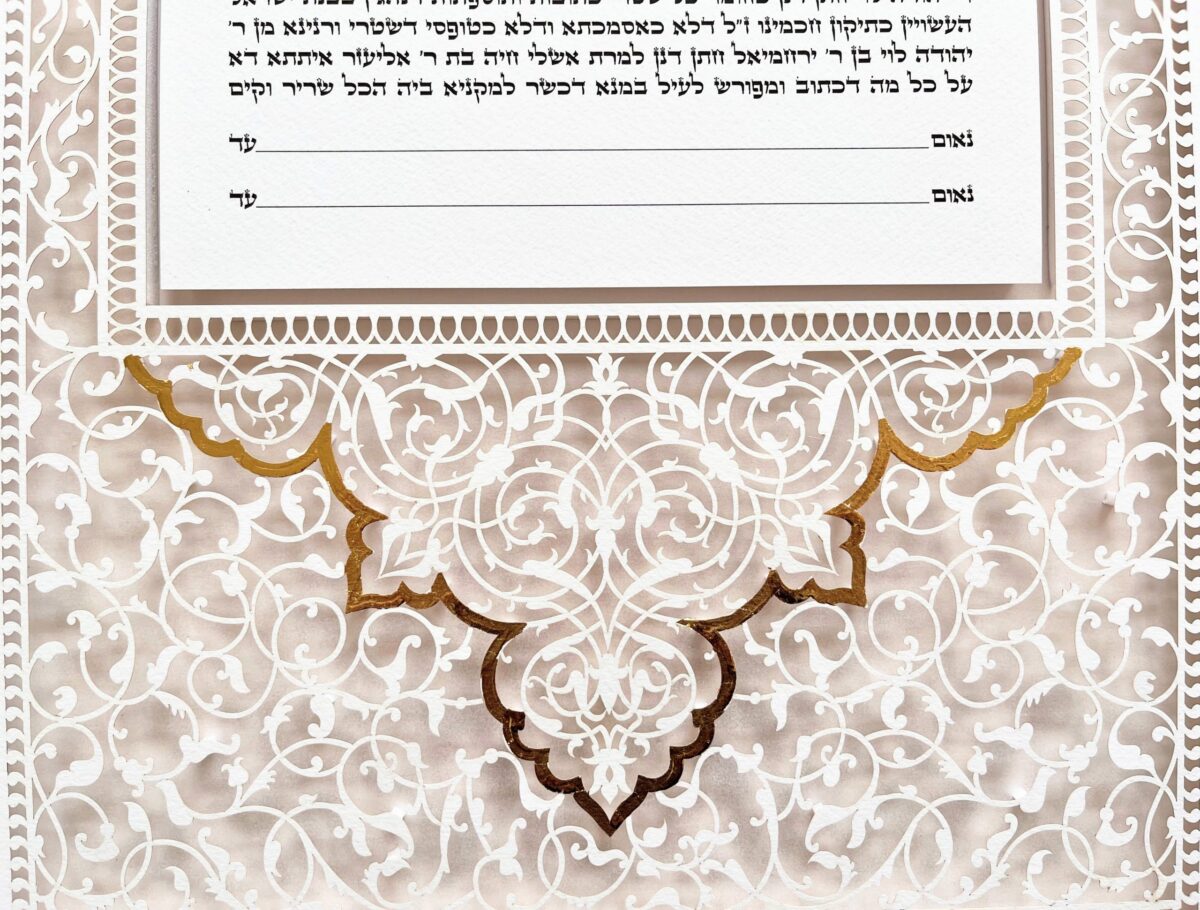 העשויין כתיקון חכמינו ז״ל דלא כאסמכתא ודלא כטופסי דשטרי וקנינא מן ר׳
יהודה לוי בן ר׳ ירחמיאל חתן דנן למרת אשלי חיה בת ר׳ אליעזר איתתא דא
על כל מה דכתוב ומפורש לעיל במנא דכשר למקניא ביה הכל שריר וקים
נאום ____ עד
נאום ____ עד